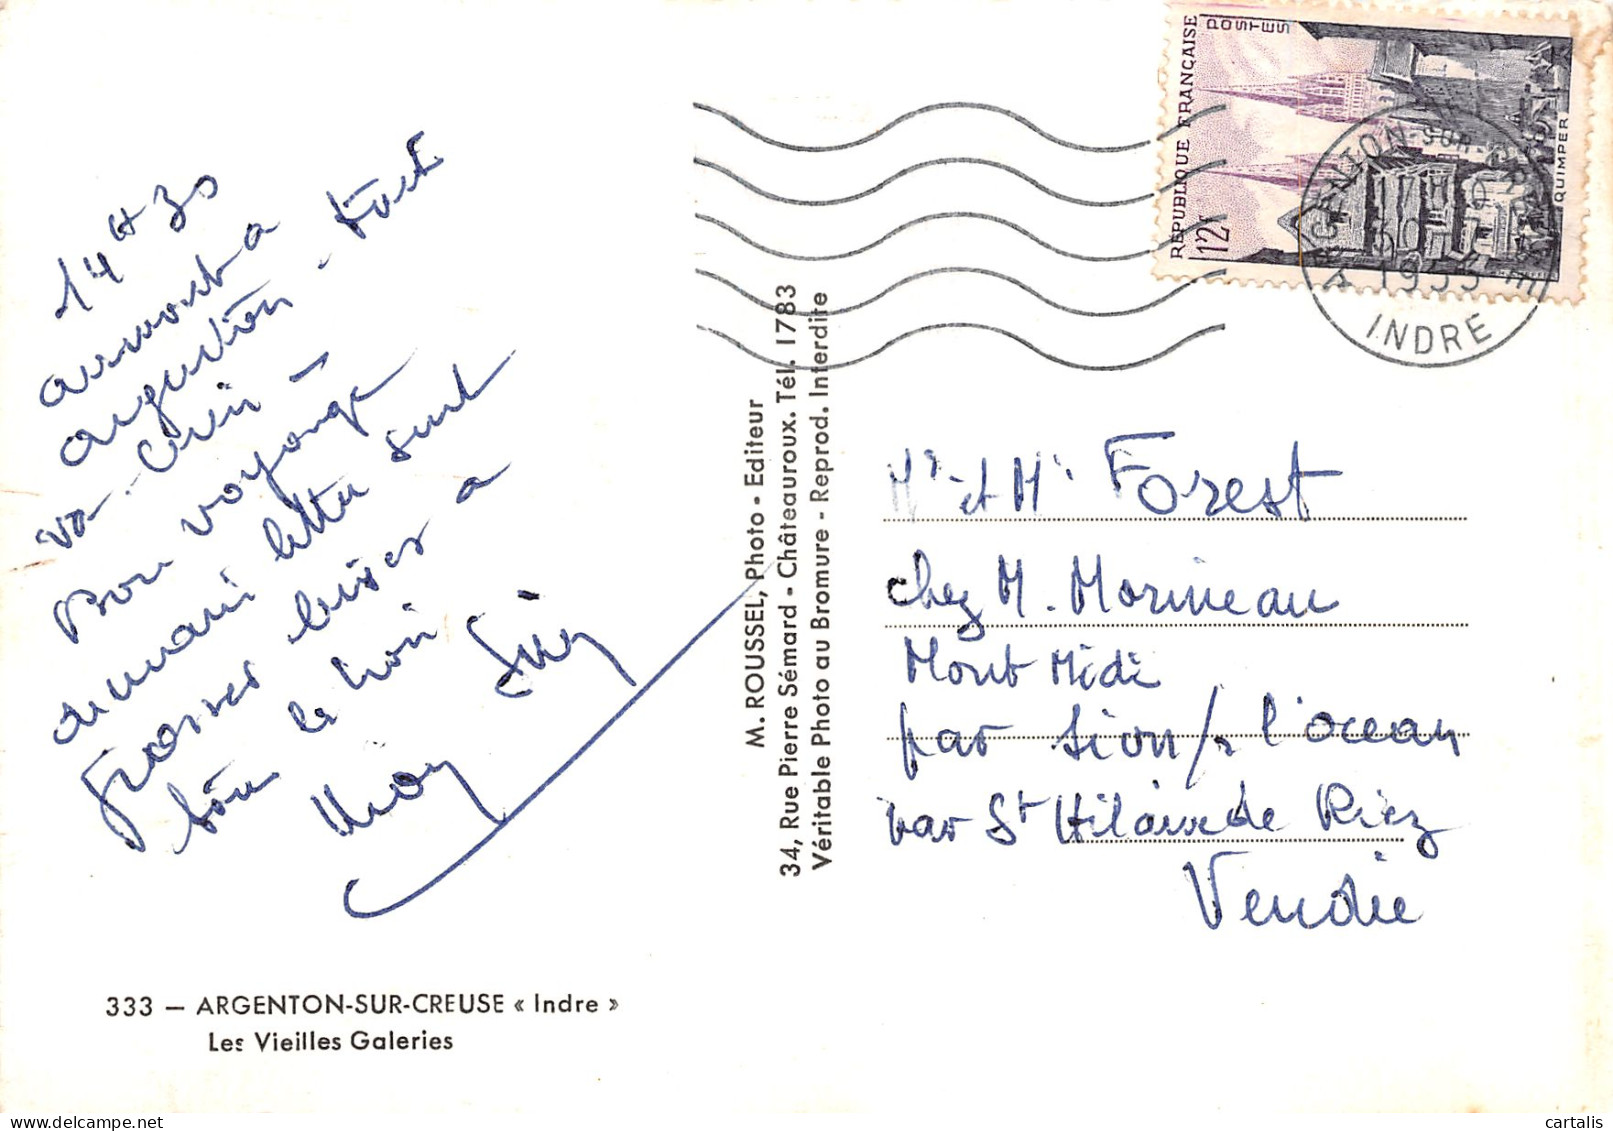 14H30
arrivons a
argenton - tout
va bien -
Bon voyage
demain lettre suit
grosses bises a
tous
333 — ARGENTON-SUR-CREUSE « Indre »
Les Vieilles Galeries
M. ROUSSEL, Photo - Editeur
34, Rue Pierre Sémard - Châteauroux. Tél. 1783
Véritable Photo au Bromure - Reprod. Interdite
RÉPUBLIQUE FRANÇAISE
POSTES
12F
QUIMPER
ARGENTON-SUR-CREUSE
1955
INDRE
Mr et Me Forest
chez M. Morineau
Mont Midi
par Sion/s l'ocean
par St Hilaire de Riez
Vendée
cartalis